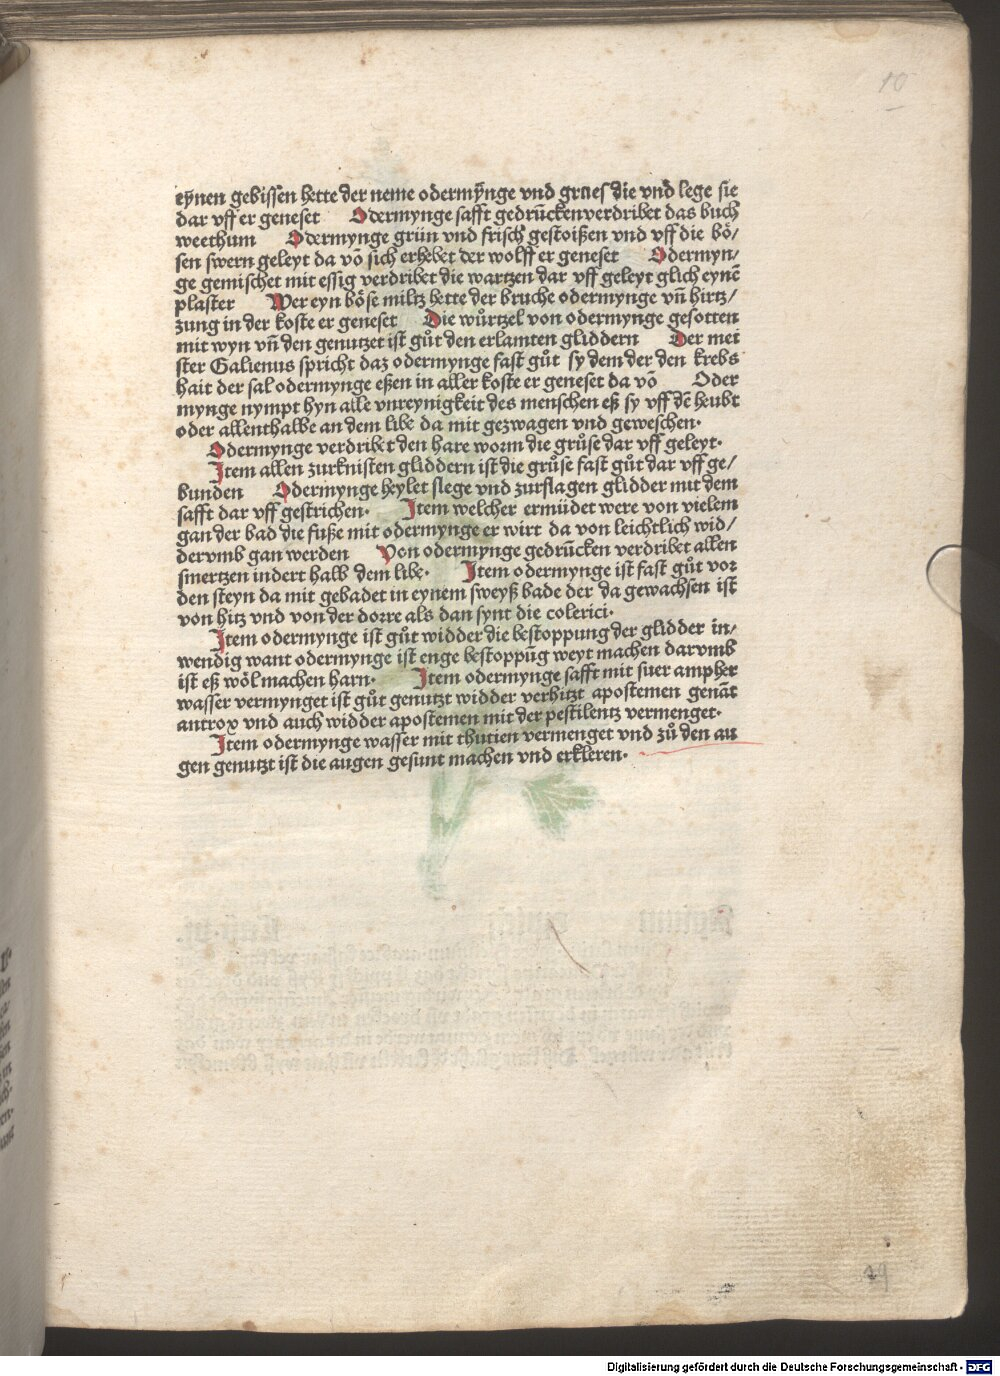 10
eÿnen gebissen hette der neme odermÿnge vnd graes die vnd lege sie
dar vff er geneset Odermynge safft gedrückenverdribet das buch
weethum Odermynge grün vnd frisch gestoißen vnd vff die bö/
sen swern geleyt da võ sich erhebet der wolff er geneset Odermyn/
ge gemischet mit essig verdribet die wartzen dar vff geleyt glich eynẽ
plaster Wer eyn böse miltz hette der bruche odermynge vñ hirtz/
zung in der koste er geneset Die wůrtzel von odermynge gesotten
mit wyn vñ den genutzet ist gůt den erlamten gliddern Der mei
ster Galienus spricht daz odermynge fast gůt sy dem der den krebs
hait der sal odermynge eßen in aller koste er geneset da võ Oder
mynge nympt hyn alle vnreynigkeit des menschen eß sy vff dẽ heubt
oder allenthalbe an dem libe da mit gezwagen vnd geweschen·
Odermynge verdribet den hare worm die grůse dar vff geleyt·
Item allen zurknisten gliddern ist die grůse fast gůt dar vff ge/
bunden Odermynge heylet slege vnd zurslagen glidder mit dem
safft dar vff gestrichen· Item welcher ermüdet were von vielem
gan der bad die fuße mit odermynge er wirt da von leichtlich wid/
dervmb gan werden Von odermynge gedrücken verdribet allen
smertzen indert halb dem libe· Item odermynge ist fast gůt vor
den steyn da mit gebadet in eynem sweyß bade der da gewachsen ist
von hitz vnd von der dorre als dan synt die colerici·
Item odermynge ist gůt widder die bestoppung der glidder in/
wendig want odermynge ist enge bestoppũg weyt machen darvmb
ist eß wöl machen harn· Item odermynge safft mit suer ampher
wasser vermynget ist gůt genutzt widder verhitzt apostemen genãt
antrox vnd auch widder apostemen mit der pestilentz vermenget·
Item odermynge wasser mit thutien vermenget vnd zů den au
gen genutzt ist die augen gesunt machen vnd erkleren·
Digitalisierung gefördert durch die Deutsche Forschungsgemeinschaft - DFG